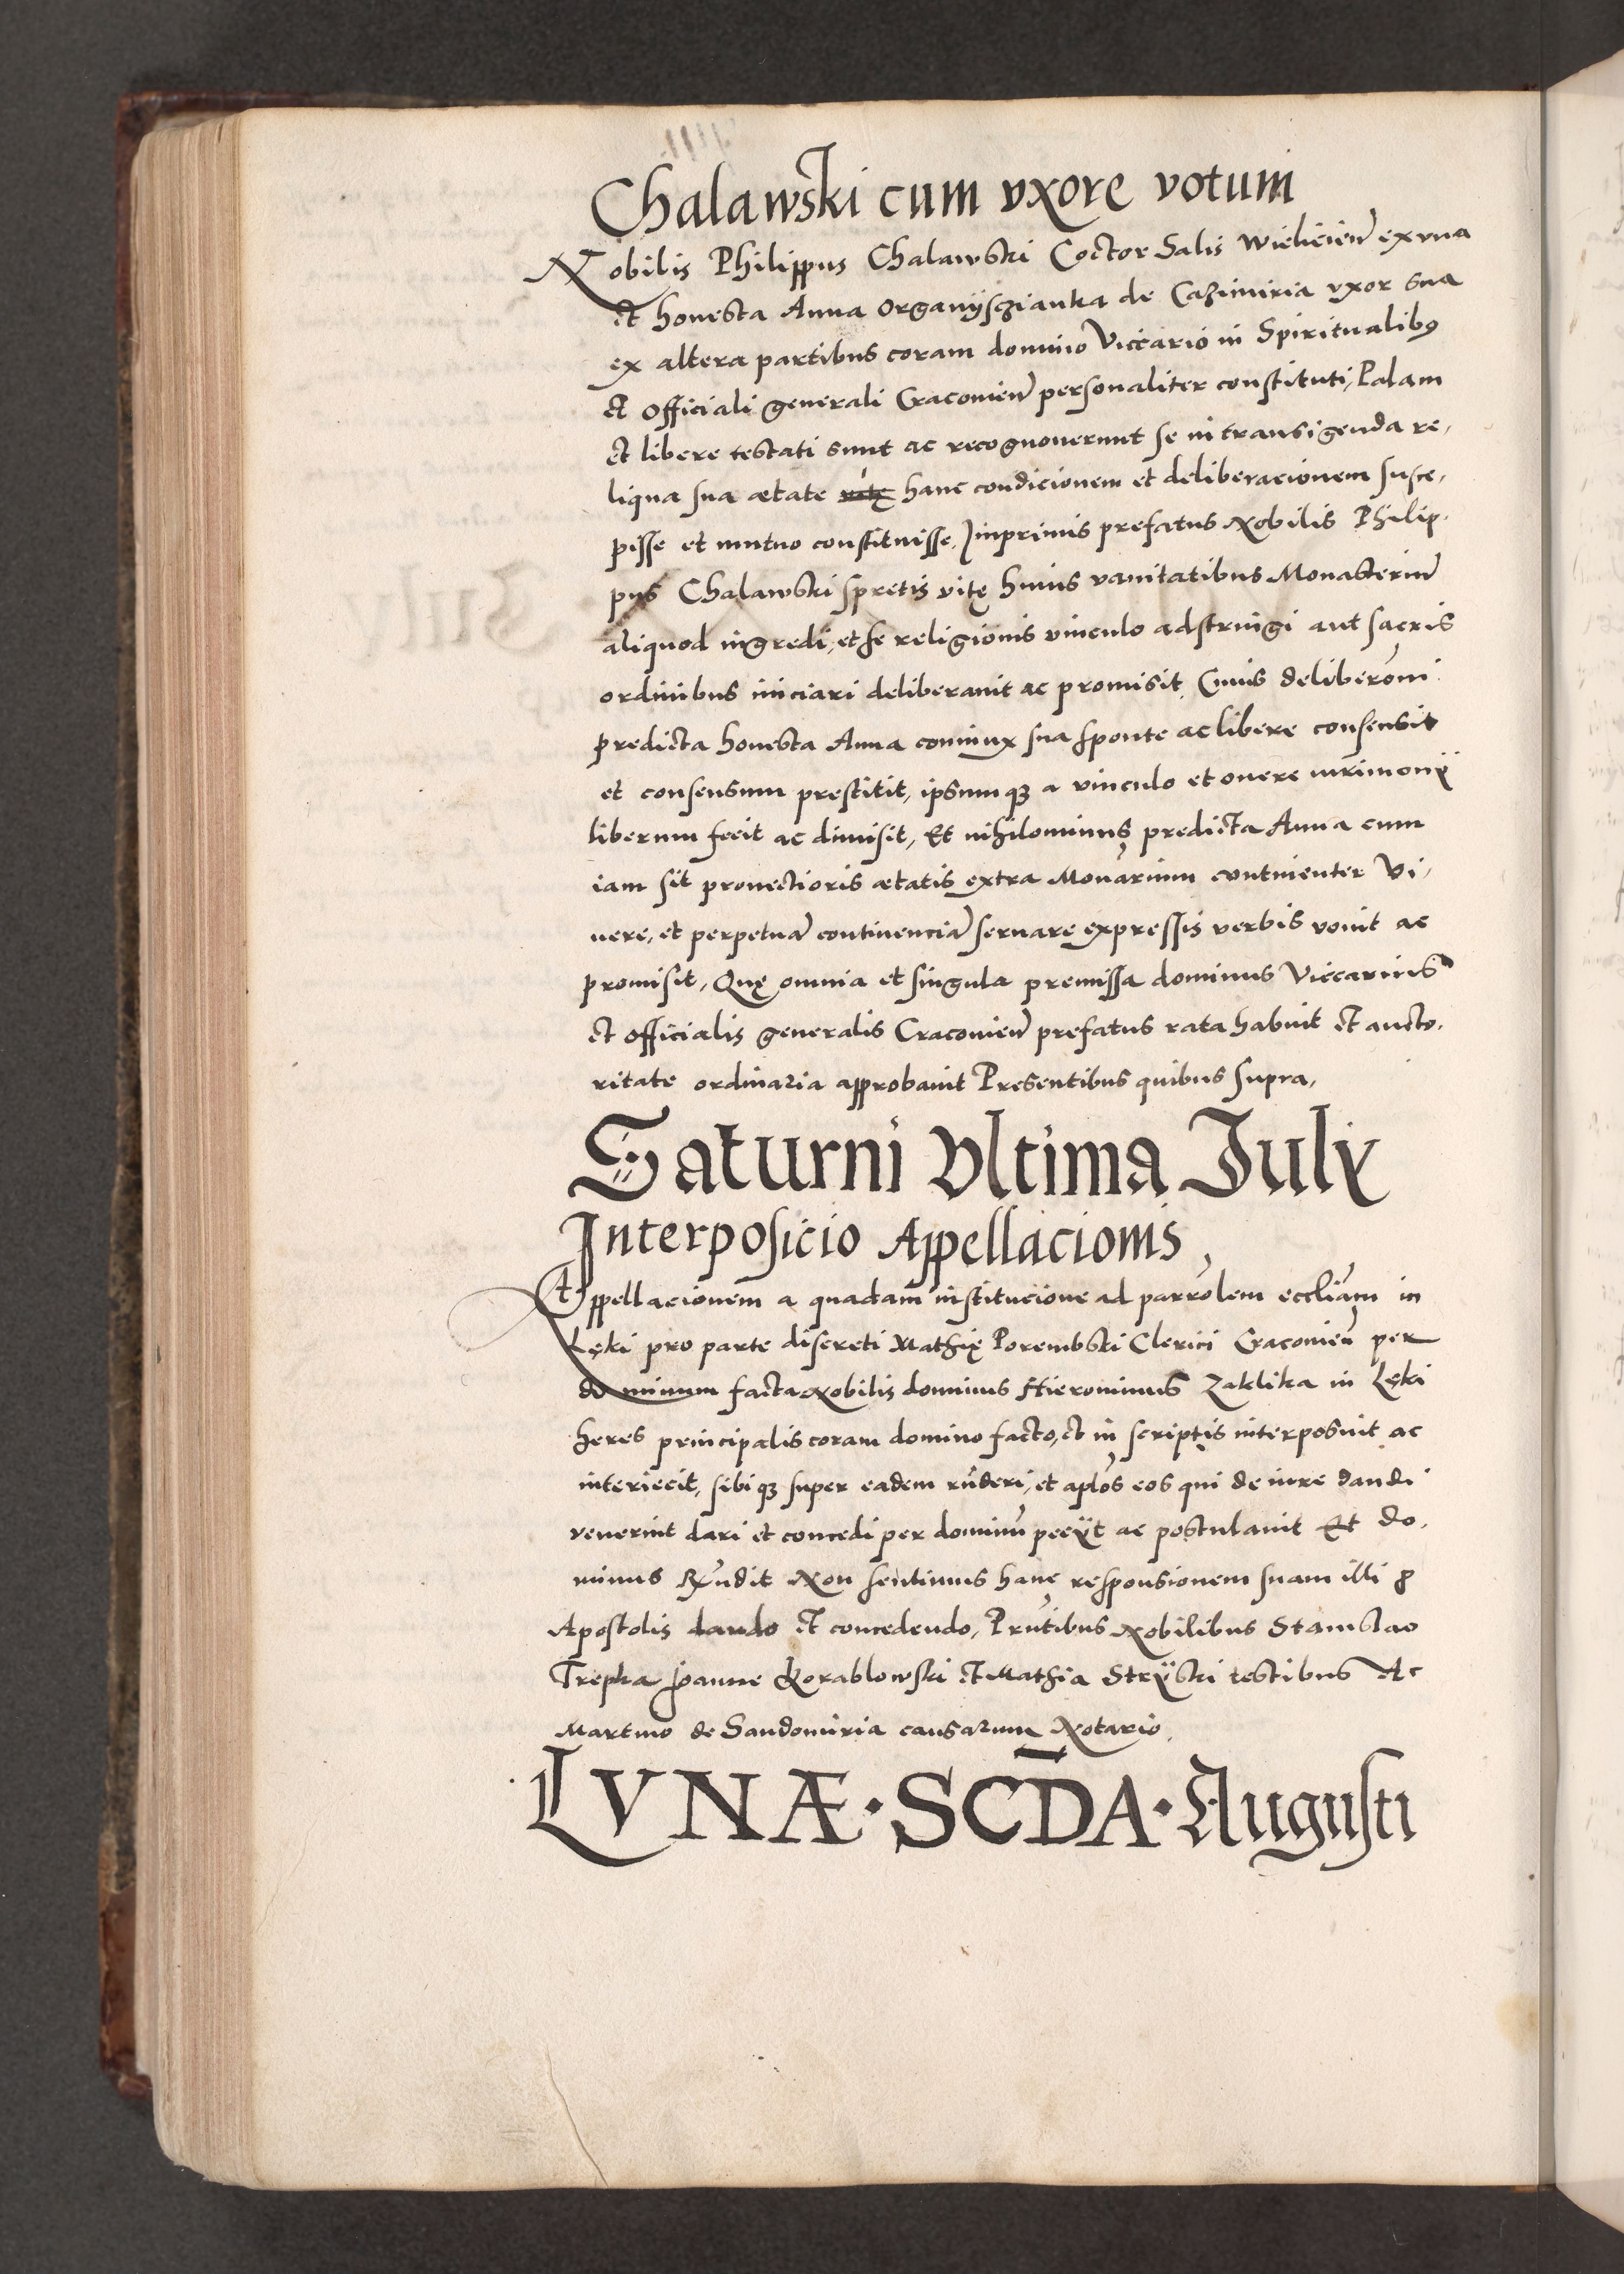 Chalawski cum vxore votum
Nobilis Philippus Chalawski Coctor Salis Wielicień ex vna
et honesta Anna Organÿsczianka de Cazimiria vxor sua
ex altera partibus coram domino Viccario in Spiritualibꝰ
et officiali generali Cracovień personaliter constituti, Palam
et libere testati sunt ac recognouerunt se in transigenda re,
liqua sua ætate hanc condicionem et deliberacionem susce,
pisse et mutuo constituisse. Inprimis prefatus Nobilis Philip,
pus Chalawski spretis vitę huius vanitatibus Monasteriu᷑
aliquod ingredi, et se religionis vinculo adstringi aut sacris
ordinibus iniciari deliberauit ac promisit. Cuius deliberoni
predicta honesta Anna coniunx sua sponte ac libere consensit
et consensum prestitit, ipsumqꝫ a vinculo et onere mrimonÿ
liberum fecit ac dimisit, Et nihilominus predicta Anna cum
iam sit prouectioris ætatis extra Monarium continenter Vi,
uere, et perpetuā continenciā seruare expressis verbis vouit ac
promisit, Quę omnia et singula premissa dominus Viccarius
et officialis generalis Cracovień prefatus rata habuit et aucto,
ritate ordinaria approbauit Presentibus quibus supra,
Saturni Vltima Julÿ
Interposicio Appellacionis
Appellacionem a quadam institucione ad parrolem eccliam in
Lęki pro parte discreti Mathię Porembski Clerici Cracovień per
dominum facta Nobilis dominus Hieronimus Zaklika in Lęki
heres principalis coram domino facto, et in scriptis interposuit ac
interiecit, sibiqꝫ super eadem rnderi, et aplos eos qui de iure dandi
venerint dari et concedi per dominū peciit ac postulauit Et do,
minus Rndit Non sentimus hanc responsionem suam illi ꝓ
Apostolis dando et concedendo, Prntibus Nobilibus Stanislao
Trepka Joanne Korablowski et Mathia Strÿski testibus Ac
Martino de Sandomiria causarum Notario.
LVNÆ · SCD̄A · Augusti